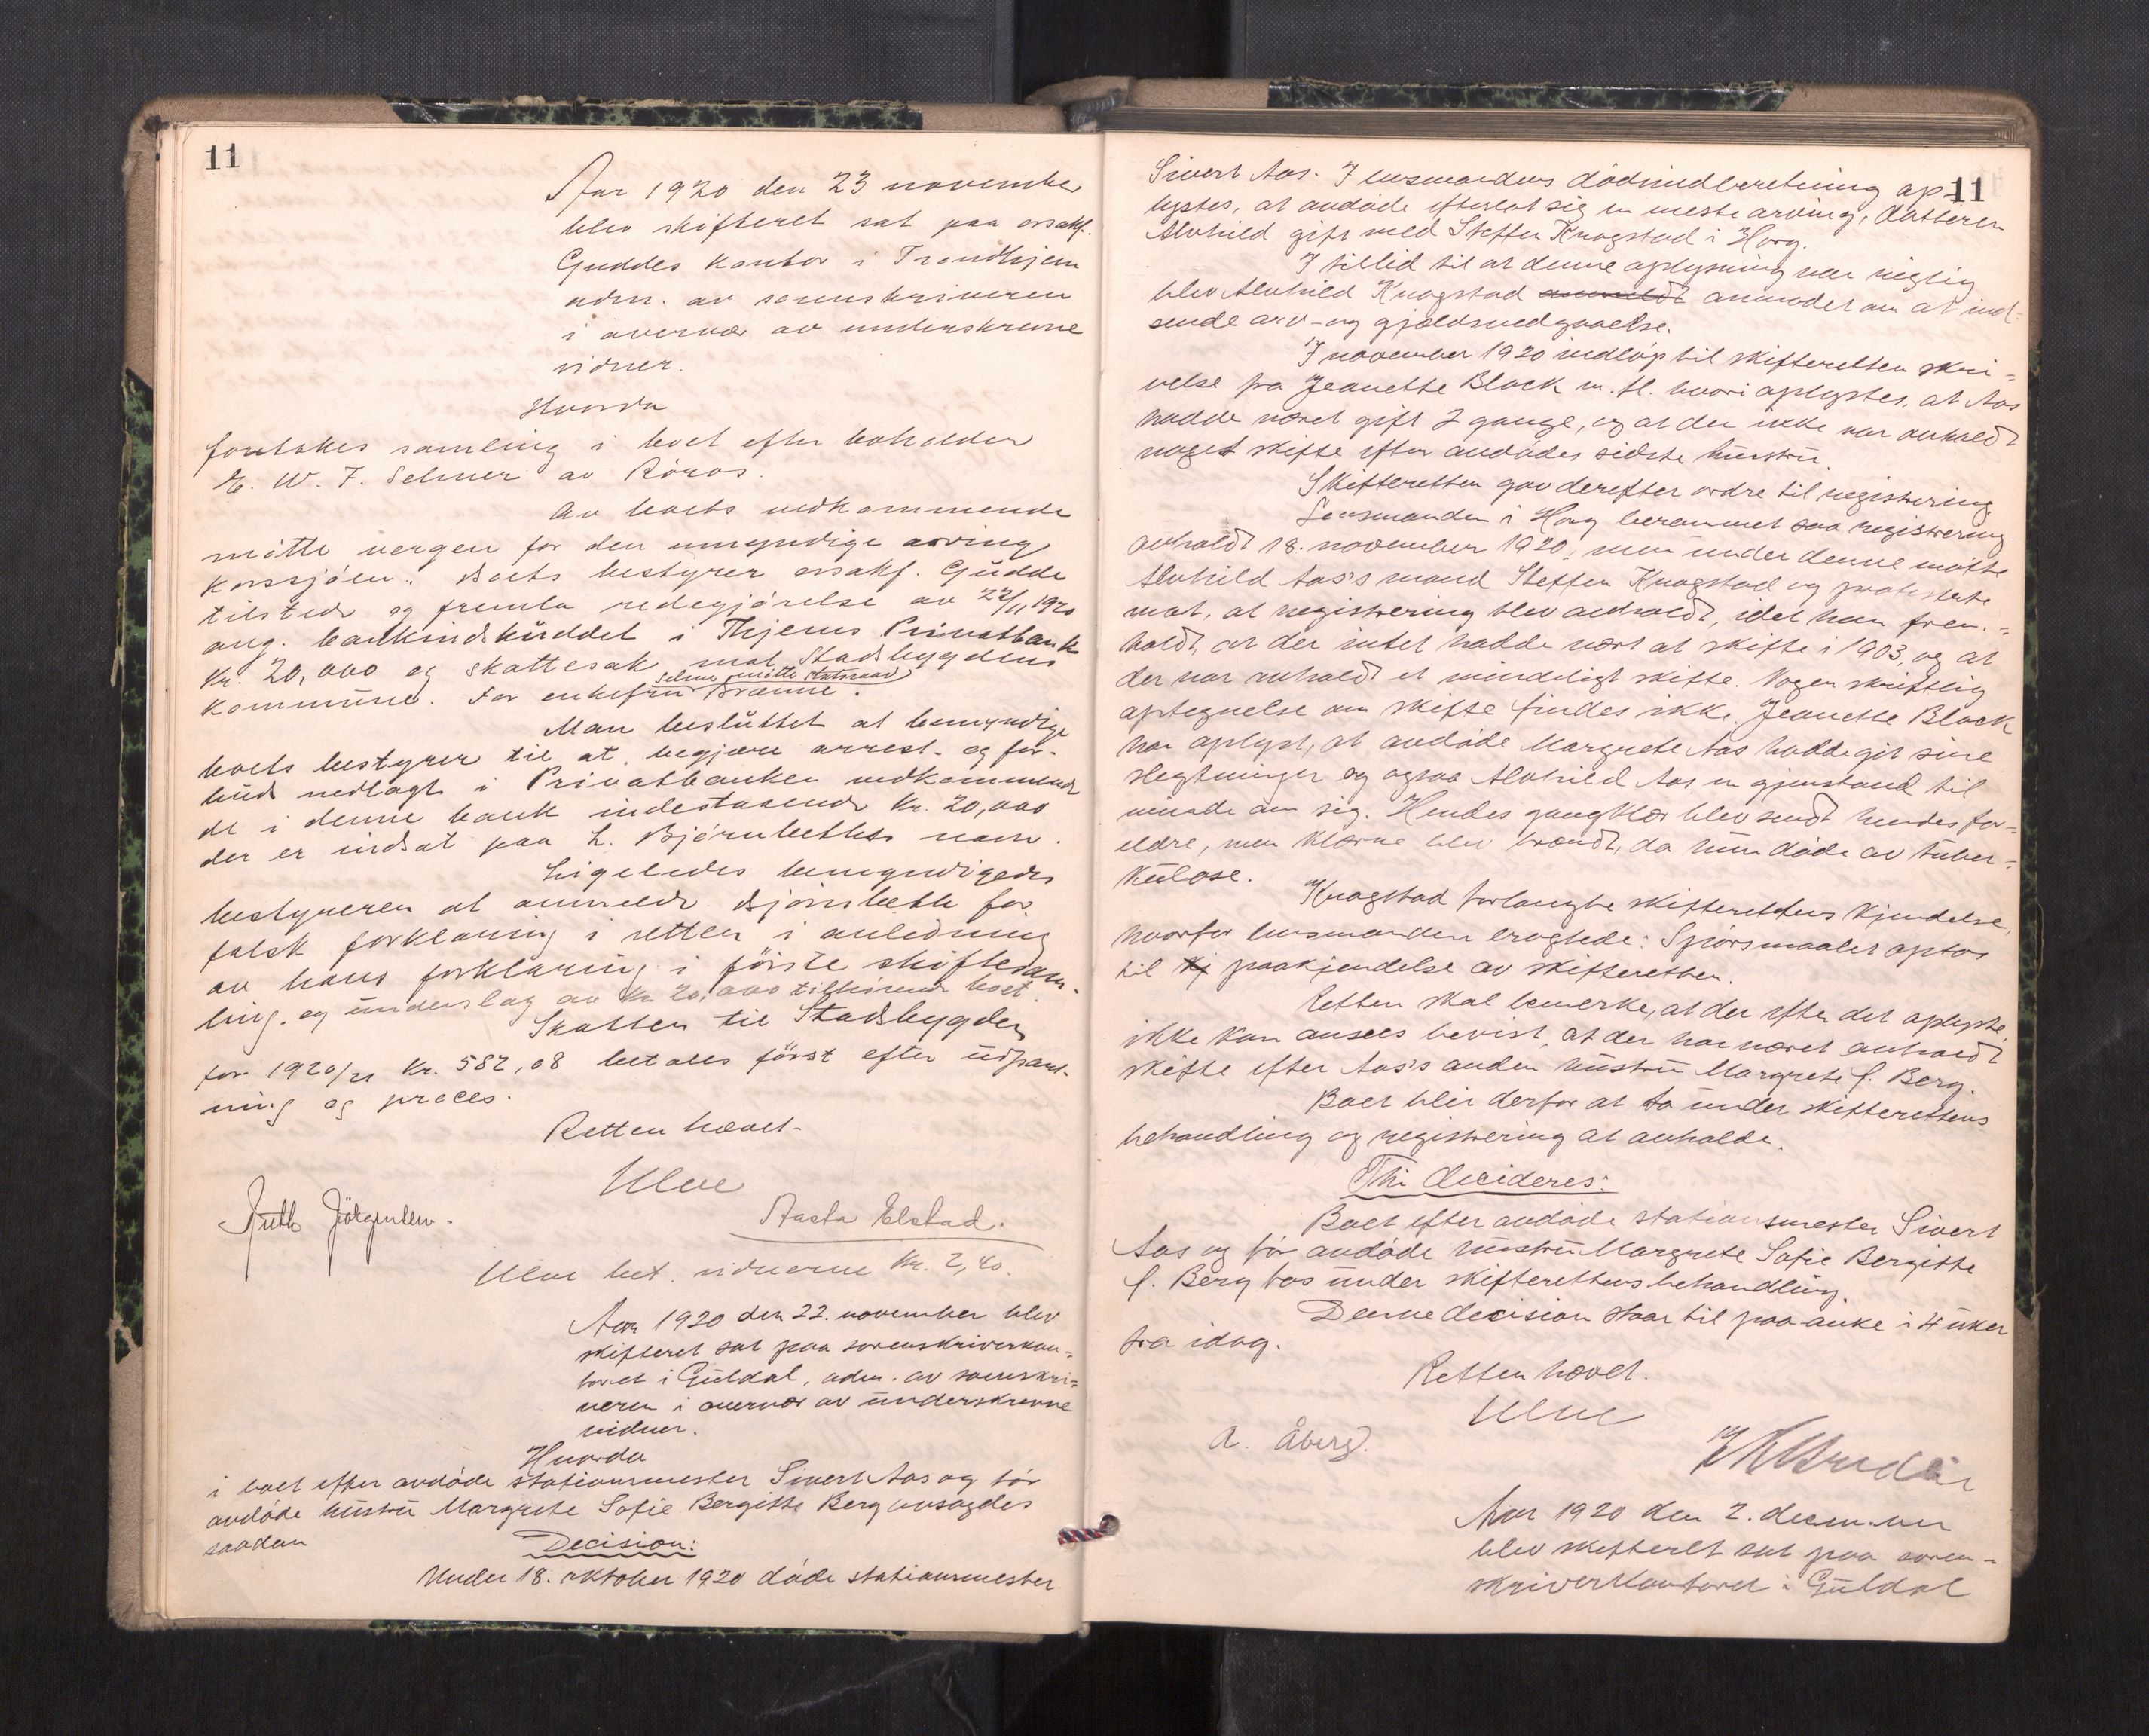 11
Aar 1920 den 23 november
blev skifteret sat paa orsakf.
Guddes kontor i Trondhjem
adm. av sorenskriveren
i overvær av underskrevne
vidner.
Hvorda
foretokes samling i boet efter boholder
E. W. F. Selmer av Röros.
Av boets vedkommende
mötte vergen for den umyndige arving
Korssjöen. Boets bestyrer orsakf. Gudde
tilstede og fremla redegjörelse av 22/11 1920
ang. bankindskuddet i Thjems Privatbank
Kr. 20,000 og skattesak mot Stadsbygdens
kommune. For enkefru Selmer mötte
Man besluttet at bemyndige
boets bestyrer til at begjære arrest- og for-
bud nedlagt i Privatbanken vedkommende
de i denne bank indestaaende Kr. 20,000
der er indsat paa L. Björnbeths navn.
Ligeledes bemyndigedes
bestyreren at anmelde Björnbeth for
falsk forklaring i retten i anledning
av hans forklaring i förste skiftesam-
ling. og underslag av Kr 20,000 tilhörende boet.
Skatten til Stadsbygden
for 1920/21 Kr. 582,08 betales först efter utpant-
ning og proces.
Retten hævet.
Ulve
Ruth Jörgensen.
Aasta Elstad.
Ulve bet. vidnerne Kr. 2,40.
Aar 1920 den 22. november blev
skifteret sat paa sorenskriverkon=
toret i Guldal, adm. av sorenskri=
veren i overvær av underskrevne
vidner.
Hvorda
i boet efter avdöde stationsmester Sivert Aas og för
avdöde hustru Margrete Sofie Bergitte Berg avsagdes
saadan
Decision:
Under 18. oktober 1920 döde stationsmester
11
Sivert Aas. I lensmandens dödsindberetning op=
lystes, at avdöde efterlot sig en neste arving, datteren
Alvhild gift med Steffen Krogstad i Horg.
I tillid til at denne oplysning var rigtig
blev Alvhild Krogstad anmeldt anmodet om at ind=
sende arv- og gjældsvedgaaelse.
I november 1920 indlöp til skifteretten skri=
velse fra Jeanette Block m. fl. hvori oplystes, at Aas
hadde været gift 2 gange, og at der ikke var avholdt
noget skifte efter avdödes sidste hustru.
Skifteretten gav derefter ordre til registrering.
Lensmanden i Horg berammet saa registrering
avholdt 18. november 1920, men under denne mötte
Alvhild Aas's mand Steffen Krogstad og protesterte
mot, at registrering blev avholdt, idet han frem=
holdt, at der intet hadde vært at skifte i 1903, og at
der var avholdt et mindeligt skifte. Nogen skriftlig
optegnelse om skifte findes ikke. Jeanette Block
har oplyst, at avdöde Margrete Aas hadde git sine
slegtninger og ogsaa Alvhild Aas en gjenstand til
minde om sig. Hendes gangklær blev sendt hendes for=
eldre, men klærne blev brændt, da hun döde av tuber=
kulose.
Krogstad forlangte skifterettens kjendelse,
hvorfor lensmanden eragtede: Spörsmaalet optas
til kj paakjendelse av skifteretten.
Retten skal bemerke, at der efter det oplyste
ikke kan ansees bevist, at der har været avholdt
skifte efter Aas's anden hustru Margrete f. Berg.
Boet blir derfor at ta under skifterettens
behandling og registrering at avholde.
Thi decideres:
Boet efter avdöde stationsmester Sivert
Aas og för avdöde hustru Margrete Sofie Bergitte
f. Berg tas under skifterettens behandling.
Denne decision staar til paaanke i 4 uker
fra idag.
Retten hævet.
Ulve
A. Åberg.
Aar 1920 den 2. december
blev skifteret sat paa soren=
skriverkontoret i Guldal